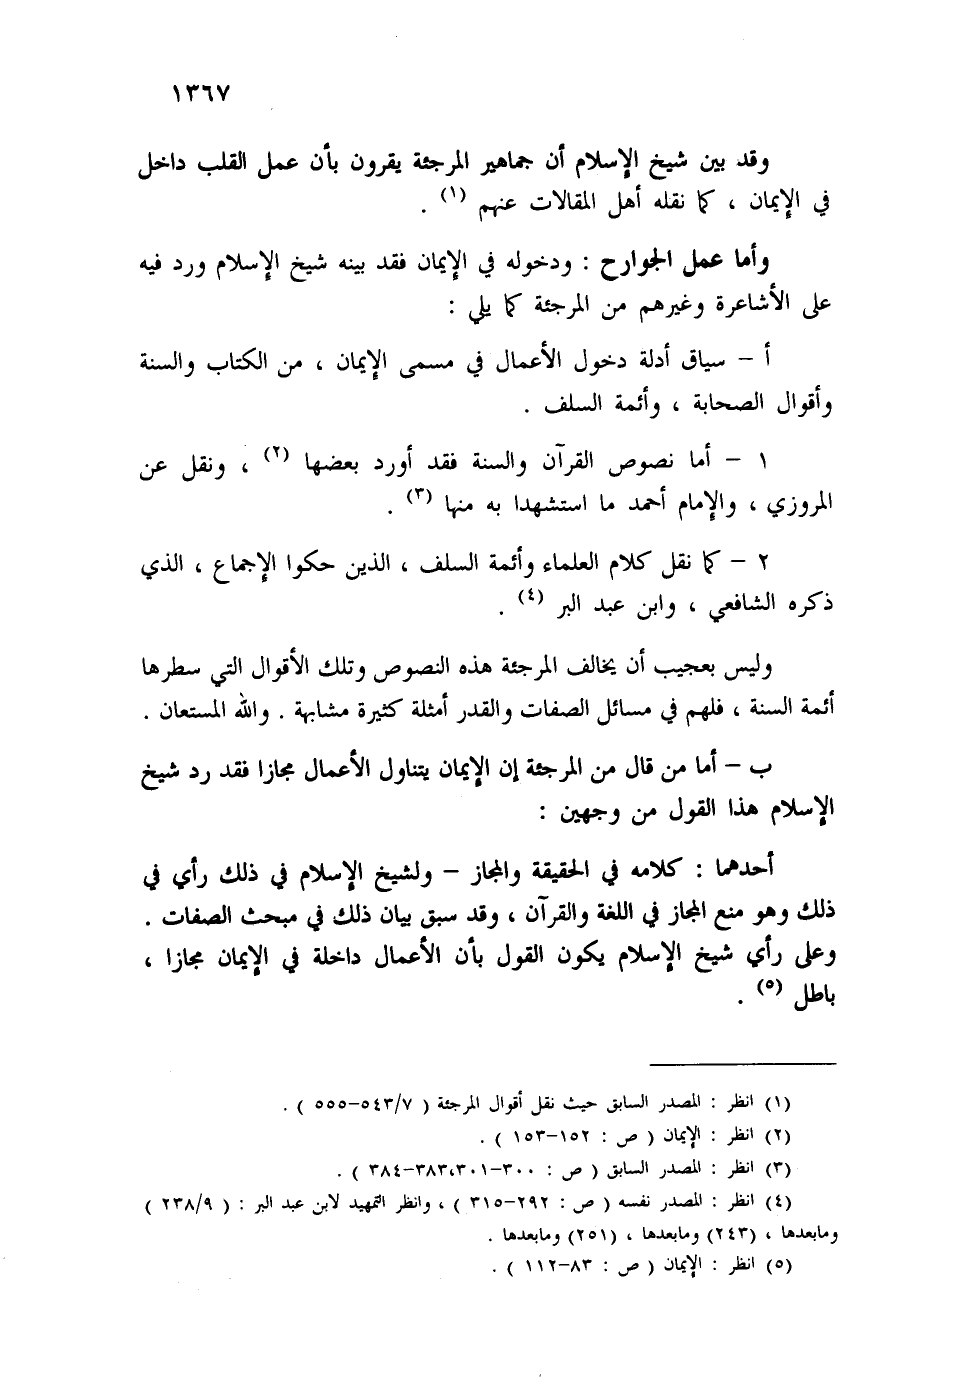 ١٣٦٧
وقد بين شيخ الإسلام أن جماهير المرجئة يقرون بأن عمل القلب داخل
في الإيمان ، كما نقله أهل المقالات عنهم (١) .
وأما عمل الجوارح : ودخوله في الإيمان فقد بينه شيخ الإسلام ورد فيه
على الأشاعرة وغيرهم من المرجئة كما يلي :
أ – سياق أدلة دخول الأعمال في مسمى الإيمان ، من الكتاب والسنة
وأقوال الصحابة ، وأئمة السلف .
١ – أما نصوص القرآن والسنة فقد أورد بعضها (٢) ، ونقل عن
المروزي ، والإمام أحمد ما استشهدا به منها (٣) .
٢ – كما نقل كلام العلماء وأئمة السلف ، الذين حكوا الإجماع ، الذي
ذكره الشافعي ، وابن عبد البر (٤) .
وليس بعجيب أن يخالف المرجئة هذه النصوص وتلك الأقوال التي سطرها
أئمة السنة ، فلهم في مسائل الصفات والقدر أمثلة كثيرة مشابهة . والله المستعان .
ب – أما من قال من المرجئة إن الإيمان يتناول الأعمال مجازا فقد رد شيخ
الإسلام هذا القول من وجهين :
أحدهما : كلامه في الحقيقة والمجاز – ولشيخ الإسلام في ذلك رأي في
ذلك وهو منع المجاز في اللغة والقرآن ، وقد سبق بيان ذلك في مبحث الصفات .
وعلى رأي شيخ الإسلام يكون القول بأن الأعمال داخلة في الإيمان مجازا ،
باطل (٥) .
(١) انظر : المصدر السابق حيث نقل أقوال المرجئة ( ٥٤٣/٧–٥٥٥ ) .
(٢) انظر : الإيمان ( ص : ١٥٢–١٥٣ ) .
(٣) انظر : المصدر السابق ( ص : ٣٠٠–٣٠١،٣٨٣–٣٨٤ ) .
(٤) انظر : المصدر نفسه ( ص : ٢٩٢–٣١٥ ) ، وانظر التمهيد لابن عبد البر : ( ٢٣٨/٩ )
ومابعدها ، (٢٤٣) ومابعدها ، (٢٥١) ومابعدها .
(٥) انظر : الإيمان ( ص : ٨٣–١١٢ ) .